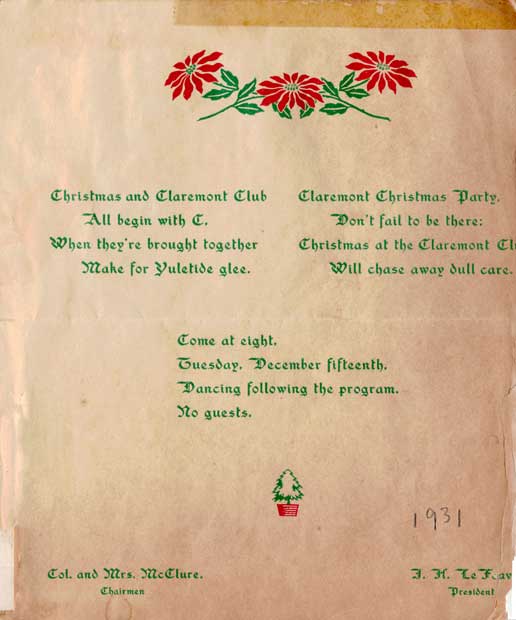 Christmas and Claremont Club
All begin with C.
When they're brought together
Make for Yuletide glee.
Claremont Christmas Party.
Don't fail to be there:
Christmas at the Claremont
Will chase away dull care.
Come at eight.
Tuesday, December fifteenth.
Dancing following the program.
No guests.
1931
Col. and Mrs. McClure.
Chairmen
President